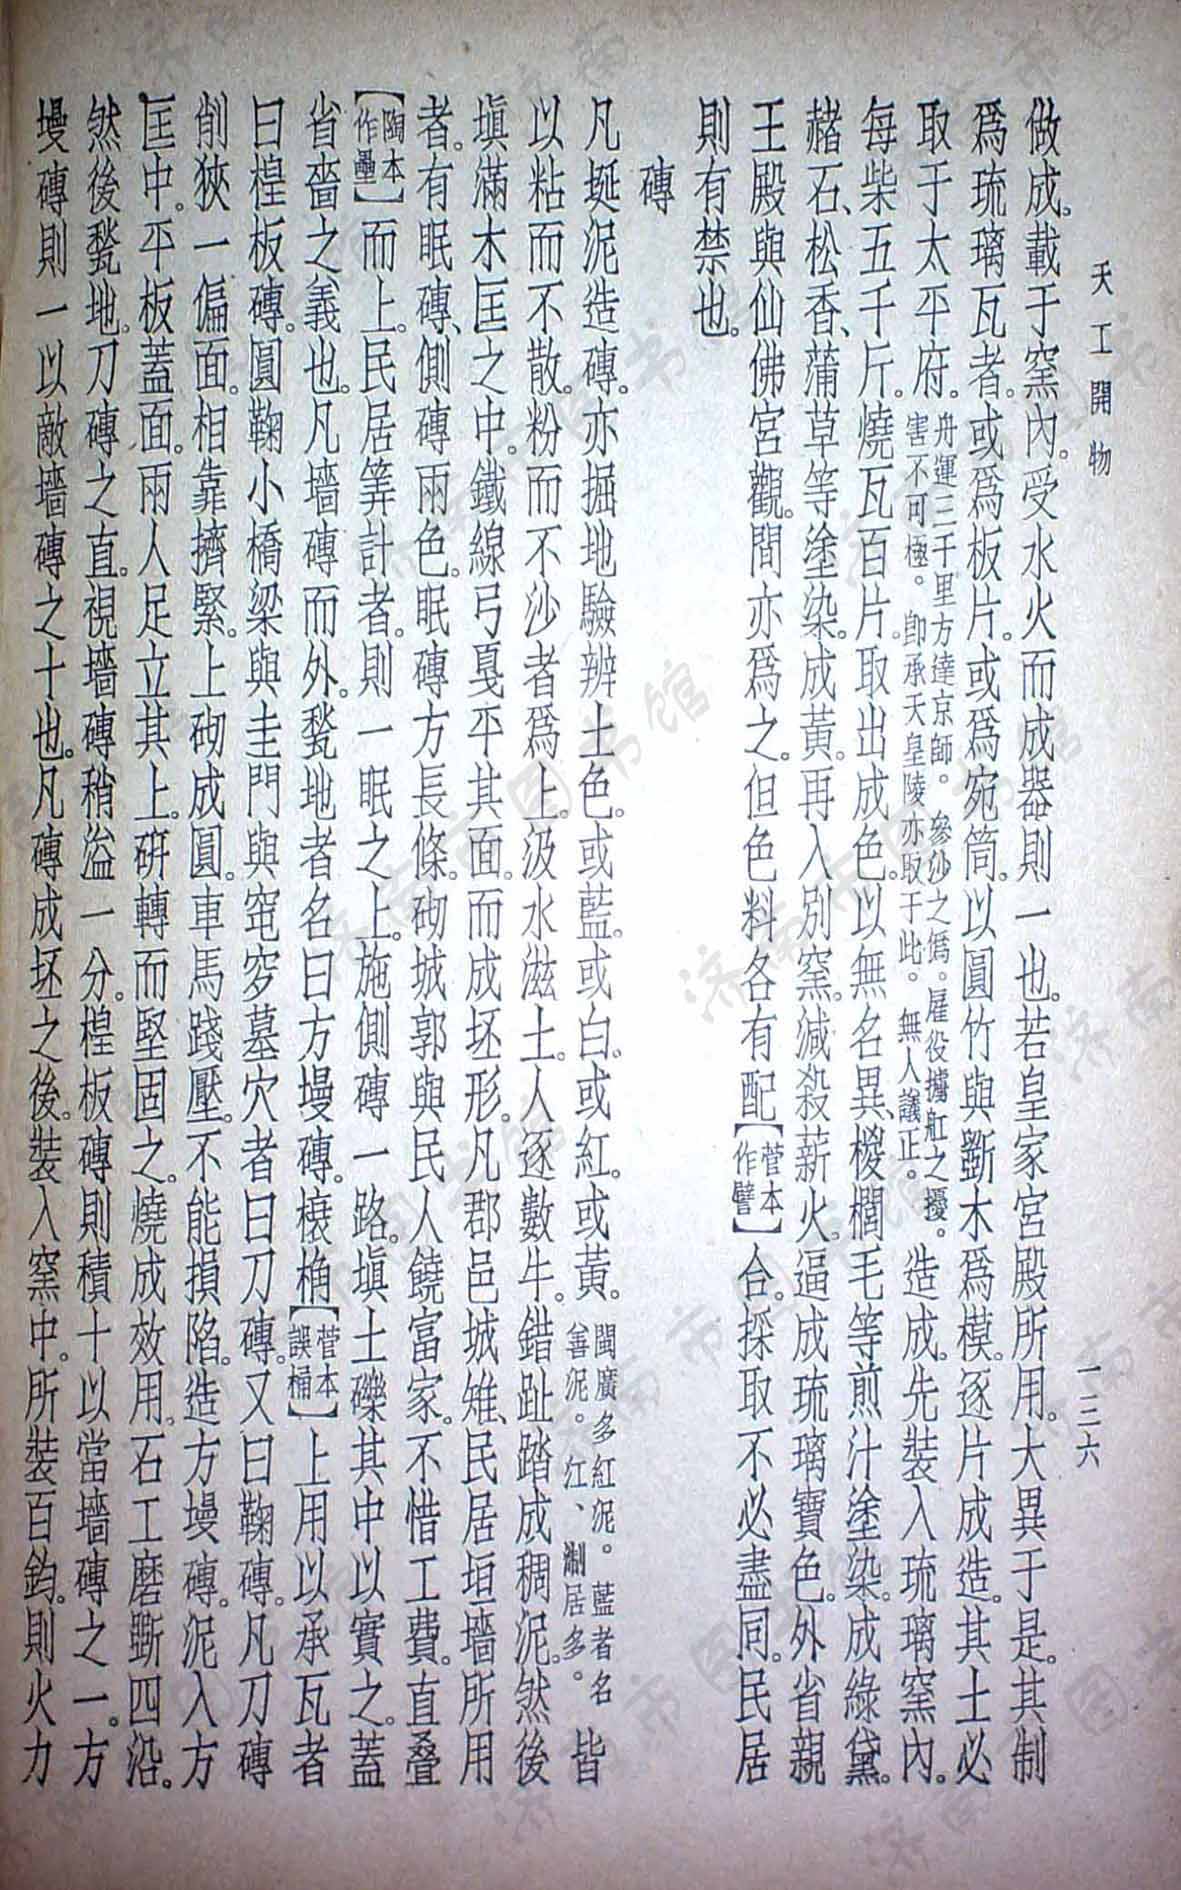 天工開物
一三六
做成。載于窯內。受水火而成器則一也。若皇家宮殿所用。大異于是。其制
爲琉璃瓦者。或爲板片。或爲宛筒。以圓竹與斲木爲模。逐片成造。其土必
取于太平府。舟運三千里方達京師。參沙之僞。雇役擄舡之擾。害不可極。卽承天皇陵亦取于此。無人議正。造成。先裝入琉璃窯內。
每柴五千斤。燒瓦百片。取出成色。以無名異、椶櫚毛等煎汁塗染。成綠黛。
赭石、松香、蒲草等塗染。成黃。再入別窯。減殺薪火。逼成琉璃寶色。外省親
王殿與仙佛宮觀。間亦爲之。但色料各有配【菅本作譬】合。採取不必盡同。民居
則有禁也。
磚
凡埏泥造磚。亦掘地驗辨土色。或藍。或白。或紅。或黃。閩廣多紅泥。藍者名善泥。江、淛居多。皆
以粘而不散。粉而不沙者爲上。汲水滋土。人逐數牛。錯趾踏成稠泥。然後
塡滿木匡之中。鐵線弓戛平其面。而成坯形。凡郡邑城雉、民居垣墻所用
者。有眠磚、側磚兩色。眠磚方長條。砌城郭與民人饒富家。不惜工費。直疊
【陶本作壘】而上。民居筭計者。則一眠之上。施側磚一路。塡土礫其中以實之。蓋
省嗇之義也。凡墻磚而外。甃地者名曰方墁磚。榱桷【菅本誤桶】上用以承瓦者
曰楻板磚。圓鞠小橋梁與圭門與窀穸墓穴者曰刀磚。又曰鞠磚。凡刀磚
削狹一偏面。相靠擠緊。上砌成圓。車馬踐壓。不能損陷。造方墁磚。泥入方
匡中。平板蓋面。兩人足立其上。硏轉而堅固之。燒成效用。石工磨斲四沿。
然後甃地。刀磚之直。視墻磚稍溢一分。楻板磚則積十以當墻磚之一。方
墁磚則一以敵墻磚之十也。凡磚成坯之後。裝入窯中。所裝百鈞。則火力